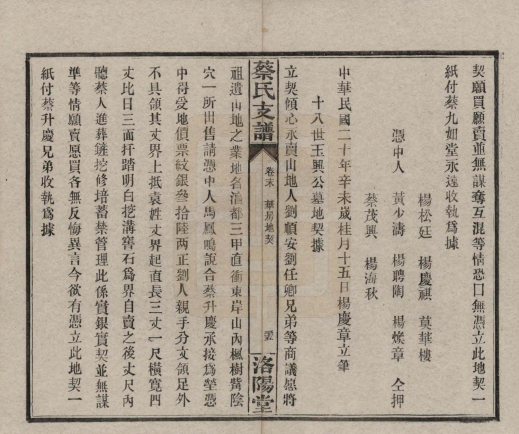 契願買願賣並無謀奪互混等情恐口無憑立此地契一
紙付蔡九如堂永遠收執爲據
楊松廷 楊慶祺 莫華樓
憑中人 黃少濤 楊聘陶 楊燦章 仝押
蔡茂興 楊海秋
中華民國二十年辛未歲桂月十五日楊慶章立筆
十八世玉興公墓地契據
立契傾心永賣山地人劉順安劉任卿兄弟等商議愿將
蔡氏支譜
卷末 華房地契
洛陽堂
祖遺山地之業地名滘都三甲直衝東岸山內楓樹嘴陰
穴一所出售請憑中人馬鳳鳴說合蔡升慶承接爲塋憑
中得受地價票紋銀叁拾陸兩正劉人親手分文領足外
不具領其丈界上抵袁姓丈界起直長三丈一尺橫寬四
丈比日三面扦踏明白挖溝窖石爲界自賣之後丈尺內
聽蔡人進葬鏟挖修培蓄禁管理此係實銀實契並無謀
準等情願賣愿買各無反悔異言今欲有憑立此地契一
紙付蔡升慶兄弟收執爲據